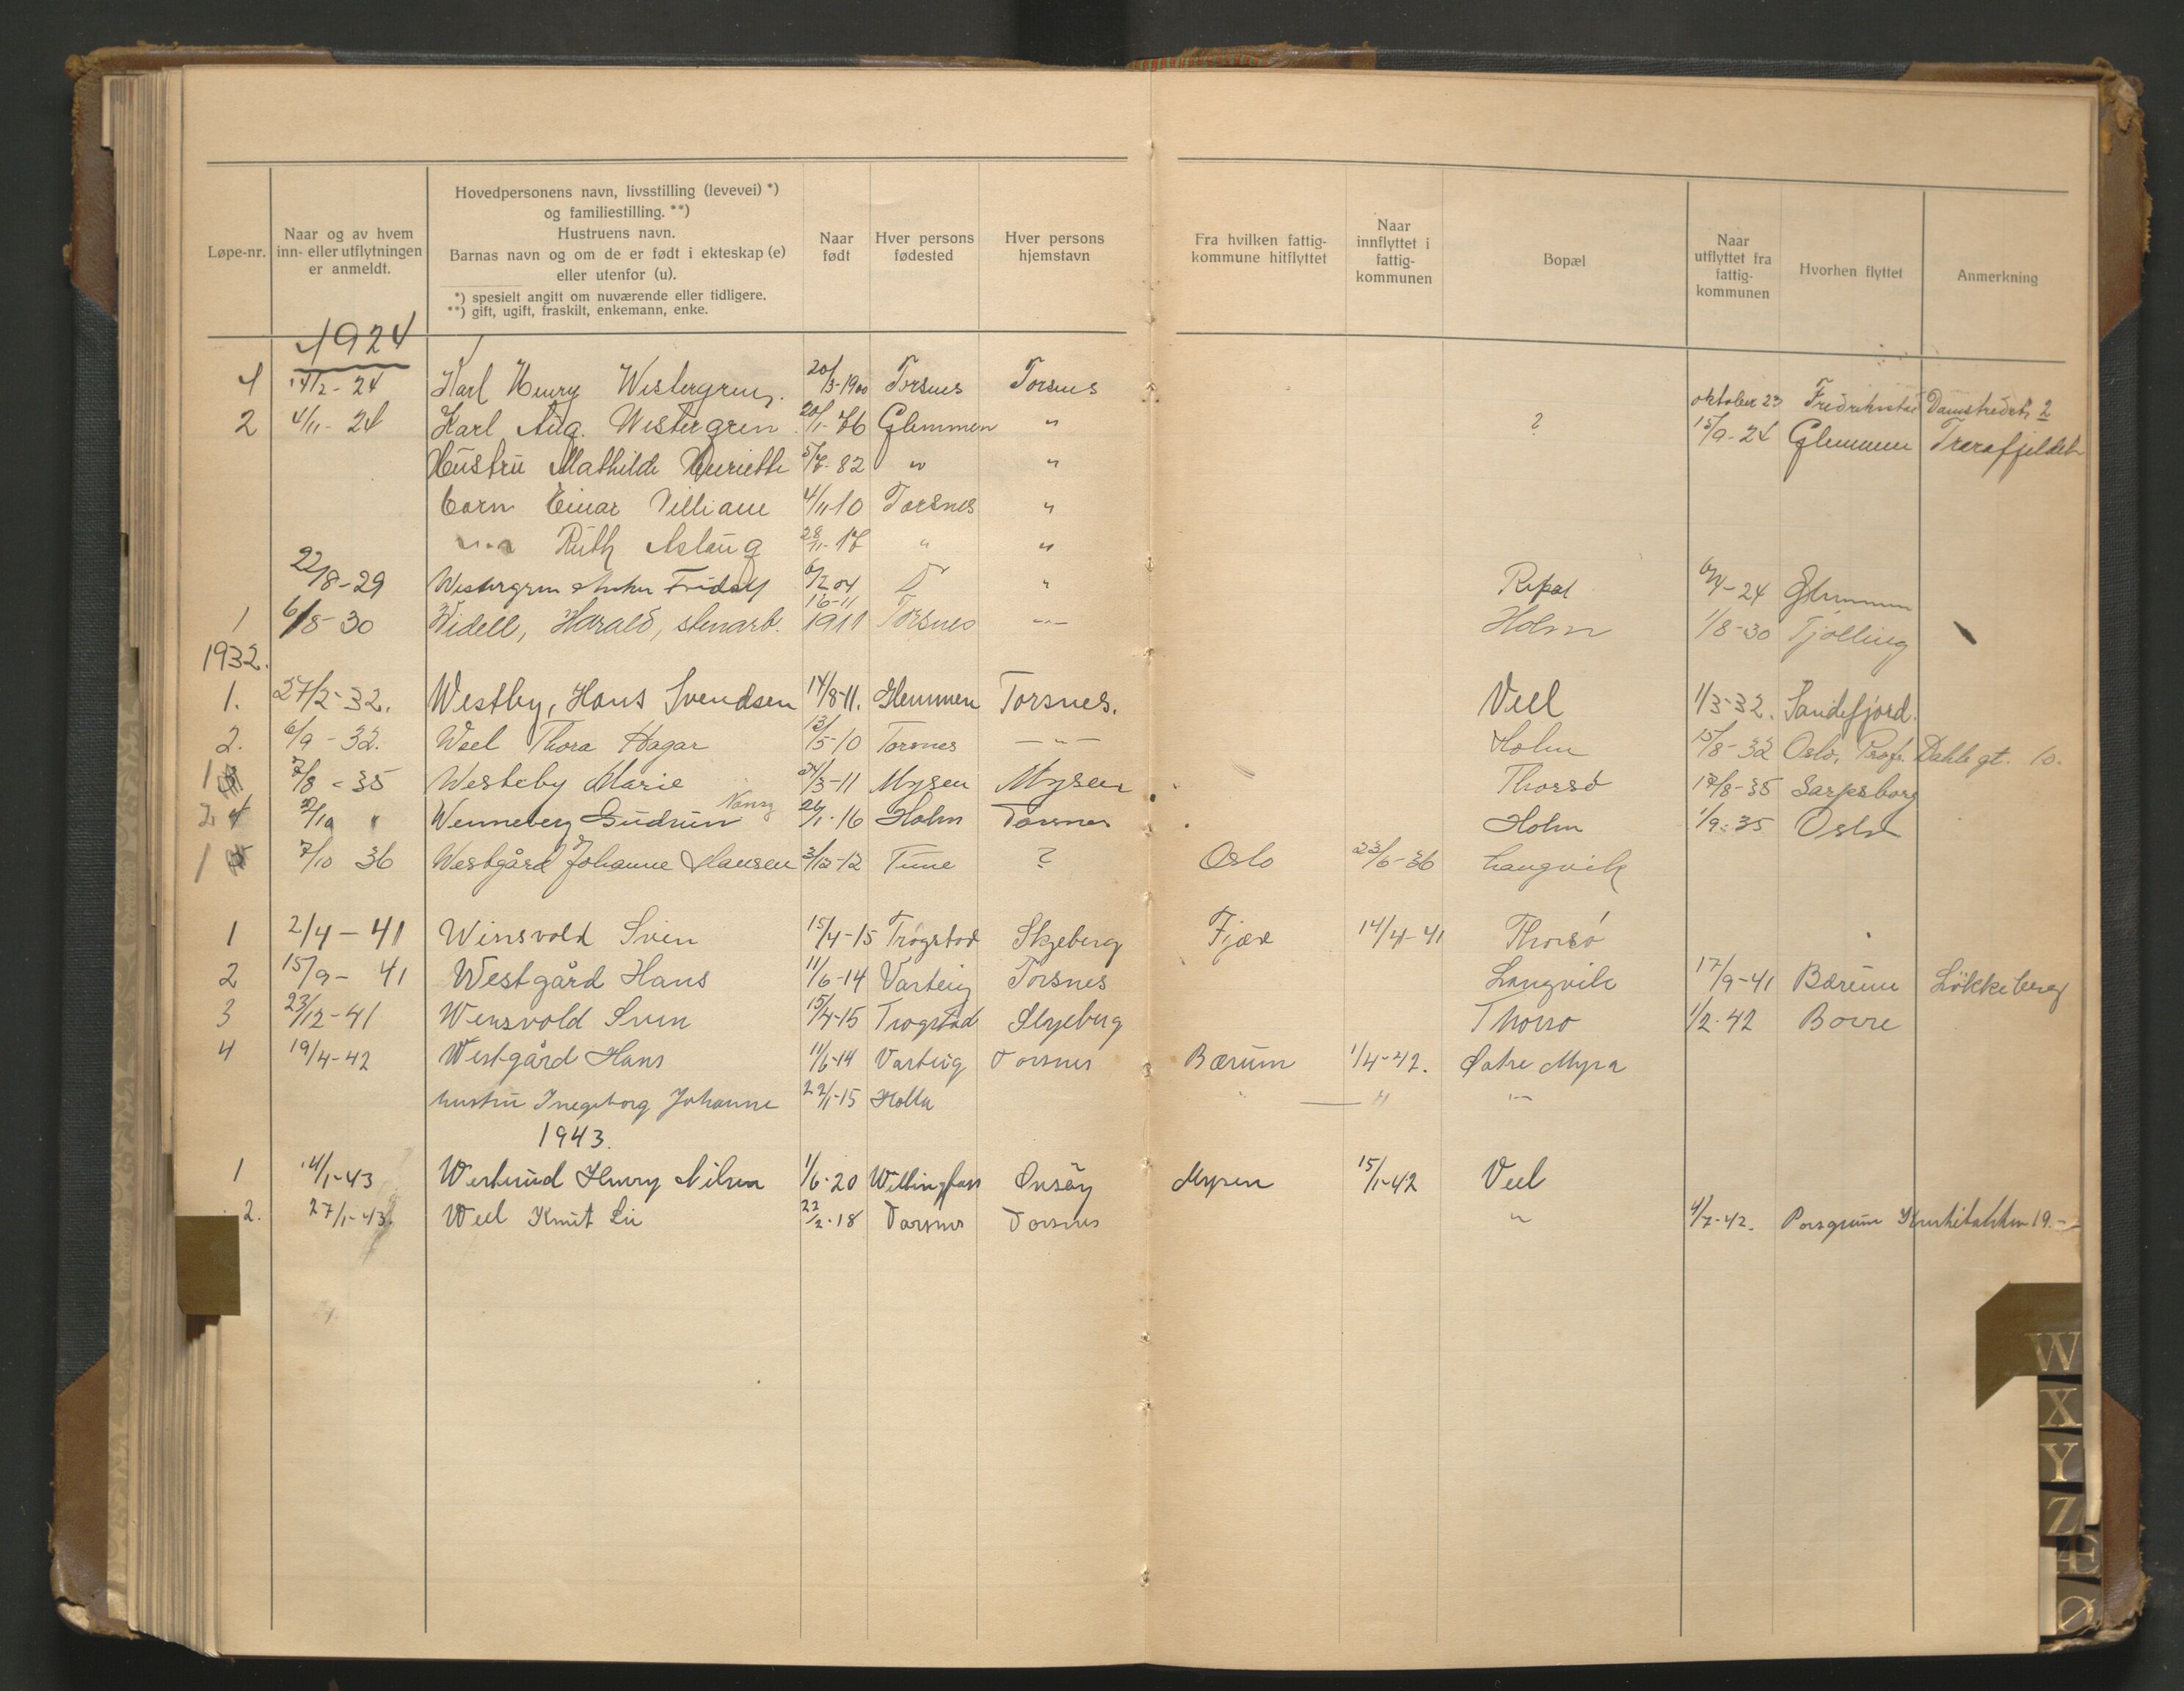 Løpe-nr. | Naar og av hvem inn- eller utflytningen er anmeldt. | Hovedpersonens navn, livsstilling (levevei) *) og familiestilling. **) Hustruens navn. Barnas navn og om de er født i ekteskap (e) eller utenfor (u). *) spesielt angitt om nuværende eller tidligere. **) gift, ugift, fraskilt, enkemann, enke. | Naar født | Hver persons fødested | Hver persons hjemstavn | Fra hvilken fattig-kommune hitflyttet | Naar innflyttet i fattig-kommunen | Bopæl | Naar utflyttet fra fattig-kommunen | Hvorhen flyttet | Anmerkning
1924
1 14/2-24 Karl Henry Westergren. 20/3-1900 Torsnes Torsnes oktober 23 Fredrikstad Damstredet 2
2 4/11-24 Karl Aug. Westergren 20/1-76 Glemmen " ? 15/9-24 Glemmen Trarafjeldet
Hustru Mathilde Henriette 5/7-82 " "
barn Einar Villiam 4/11 10 Torsnes "
" " Ruth Aslaug 28/11-17 " "
22/8-29 Westergren Fridolf 6/2 04 " 6/4-24 Glemmen
1 6/8-30 Widell, Harald, stenarb. 16-11 1911 Torsnes -"- Holm 1/8-30 Tjølling
1932.
1. 27/2-32. Westby, Hans Svendsen 14/8-11. Glemmen Torsnes. Veel 1/3-32. Sandefjord.
2. 6/9-32. Weel Thora Hagar 13/5-10 Torsnes -"- Holm 15/8-32 Oslo, Prof. Dahls gt. 10.
1 7/8-35 Westeby Marie 24/3-11 Mysen Mysen Thorsø 17/8-35 Sarpsborg
2 2/10 " Wenneberg Gudrun Nansy 26/1-16 Holm Torsnes Holm 1/9-35 Oslo
1 7/10 36 Westgård Johanne Hansen 3/12-12 Tune ? Oslo 23/6-36 Langvik
1 2/4-41 Winsvold Sven 15/4-15 Trøgstad Skjeberg Fjære 14/4-41 Thorsø
2 15/9-41 Westgård Hans 11/6-14 Varteig Torsnes Langvik 17/9-41 Bærum Løkkeberg
3 23/12-41 Wensvold Sven 15/4-15 Trøgstad Skjeberg Thorsø 1/2-42 Borre
4 19/4-42 Westgård Hans 11/6-14 Varteig Torsnes Bærum 1/4-42. Østre Myra
hustru Ingeborg Johanne 22/1-15 Holla — " "
1943.
1 14/1-43 Westrud Henry Nilsen 1/6-20 Onsøy Mysen 15/1-42 Veel
2. 27/1-43. Weel Knut Lie 22/2-18 Torsnes Torsnes " 4/7-42. Porsgrunn 19.-
W
X
Y
Z
Æ
Ø